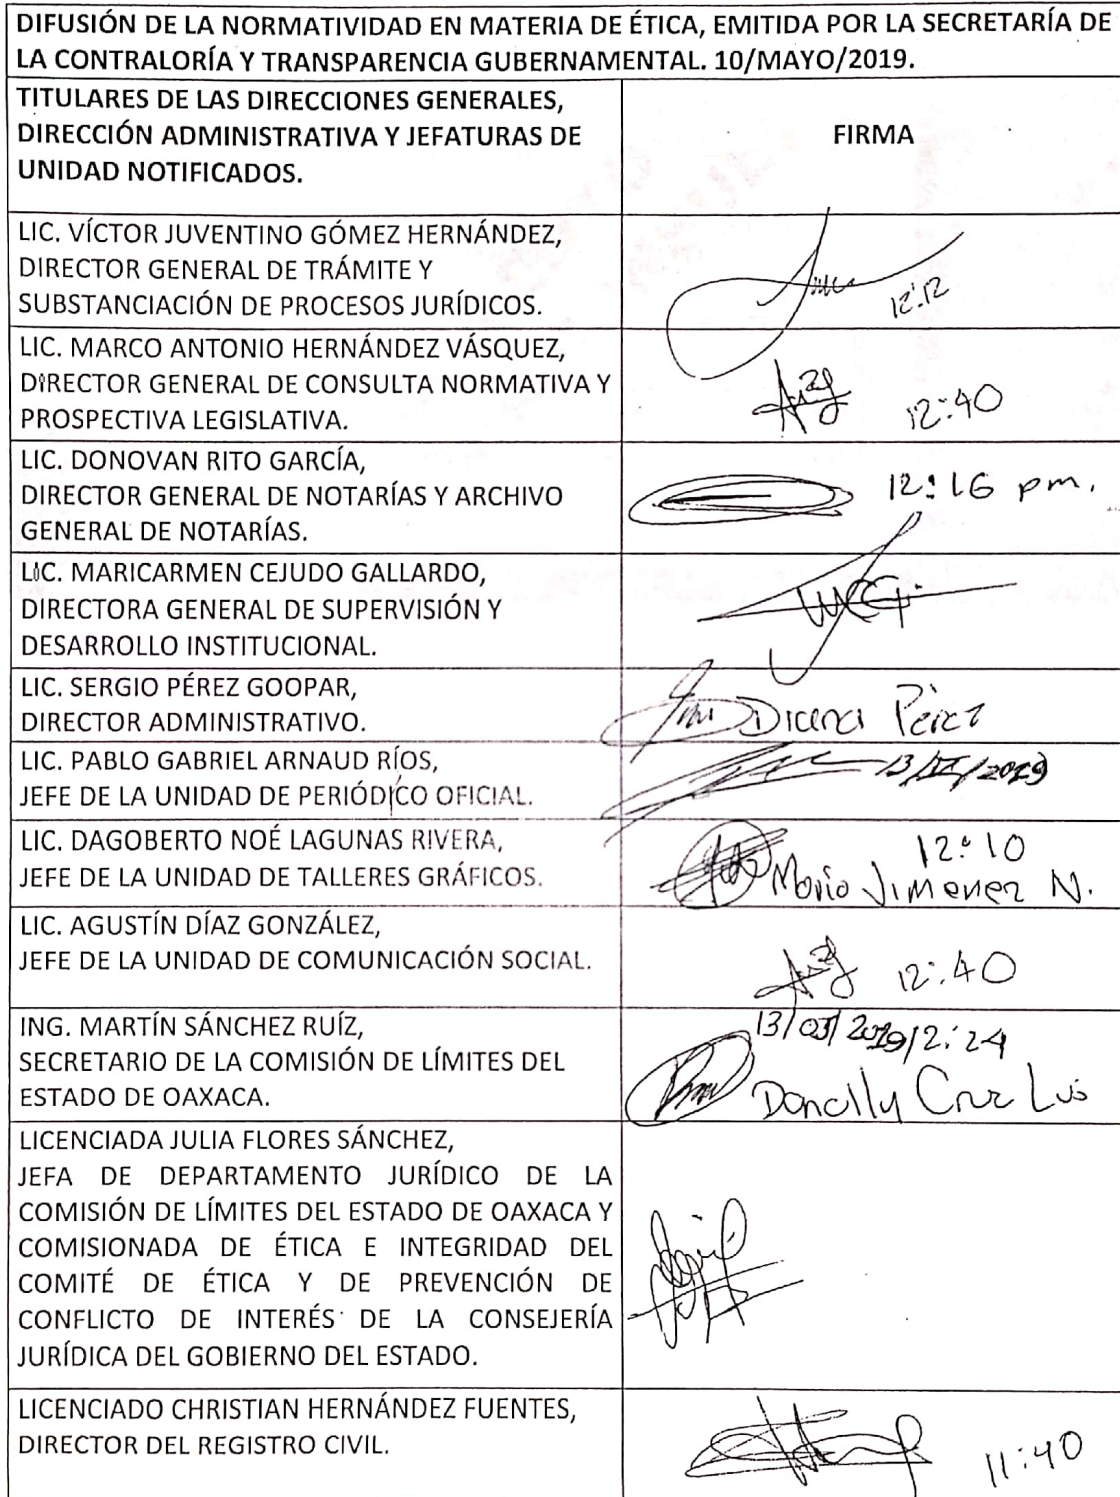 DIFUSIÓN DE LA NORMATIVIDAD EN MATERIA DE ÉTICA, EMITIDA POR LA SECRETARÍA DE
LA CONTRALORÍA Y TRANSPARENCIA GUBERNAMENTAL. 10/MAYO/2019.
TITULARES DE LAS DIRECCIONES GENERALES,
DIRECCIÓN ADMINISTRATIVA Y JEFATURAS DE
UNIDAD NOTIFICADOS.
FIRMA
LIC. VÍCTOR JUVENTINO GÓMEZ HERNÁNDEZ,
DIRECTOR GENERAL DE TRÁMITE Y
SUBSTANCIACIÓN DE PROCESOS JURÍDICOS.
12:12
LIC. MARCO ANTONIO HERNÁNDEZ VÁSQUEZ,
DIRECTOR GENERAL DE CONSULTA NORMATIVA Y
PROSPECTIVA LEGISLATIVA.
12:40
LIC. DONOVAN RITO GARCÍA,
DIRECTOR GENERAL DE NOTARÍAS Y ARCHIVO
GENERAL DE NOTARÍAS.
12:16 pm.
LIC. MARICARMEN CEJUDO GALLARDO,
DIRECTORA GENERAL DE SUPERVISIÓN Y
DESARROLLO INSTITUCIONAL.
LIC. SERGIO PÉREZ GOOPAR,
DIRECTOR ADMINISTRATIVO.
Pérez
LIC. PABLO GABRIEL ARNAUD RÍOS,
JEFE DE LA UNIDAD DE PERIÓDICO OFICIAL.
LIC. DAGOBERTO NOÉ LAGUNAS RIVERA,
JEFE DE LA UNIDAD DE TALLERES GRÁFICOS.
12:10
Mario Jimenez N.
LIC. AGUSTÍN DÍAZ GONZÁLEZ,
JEFE DE LA UNIDAD DE COMUNICACIÓN SOCIAL.
12:40
ING. MARTÍN SÁNCHEZ RUÍZ,
SECRETARIO DE LA COMISIÓN DE LÍMITES DEL
ESTADO DE OAXACA.
Cruz Luis
LICENCIADA JULIA FLORES SÁNCHEZ,
JEFA DE DEPARTAMENTO JURÍDICO DE LA
COMISIÓN DE LÍMITES DEL ESTADO DE OAXACA Y
COMISIONADA DE ÉTICA E INTEGRIDAD DEL
COMITÉ DE ÉTICA Y DE PREVENCIÓN DE
CONFLICTO DE INTERÉS DE LA CONSEJERÍA
JURÍDICA DEL GOBIERNO DEL ESTADO.
LICENCIADO CHRISTIAN HERNÁNDEZ FUENTES,
DIRECTOR DEL REGISTRO CIVIL.
11:40